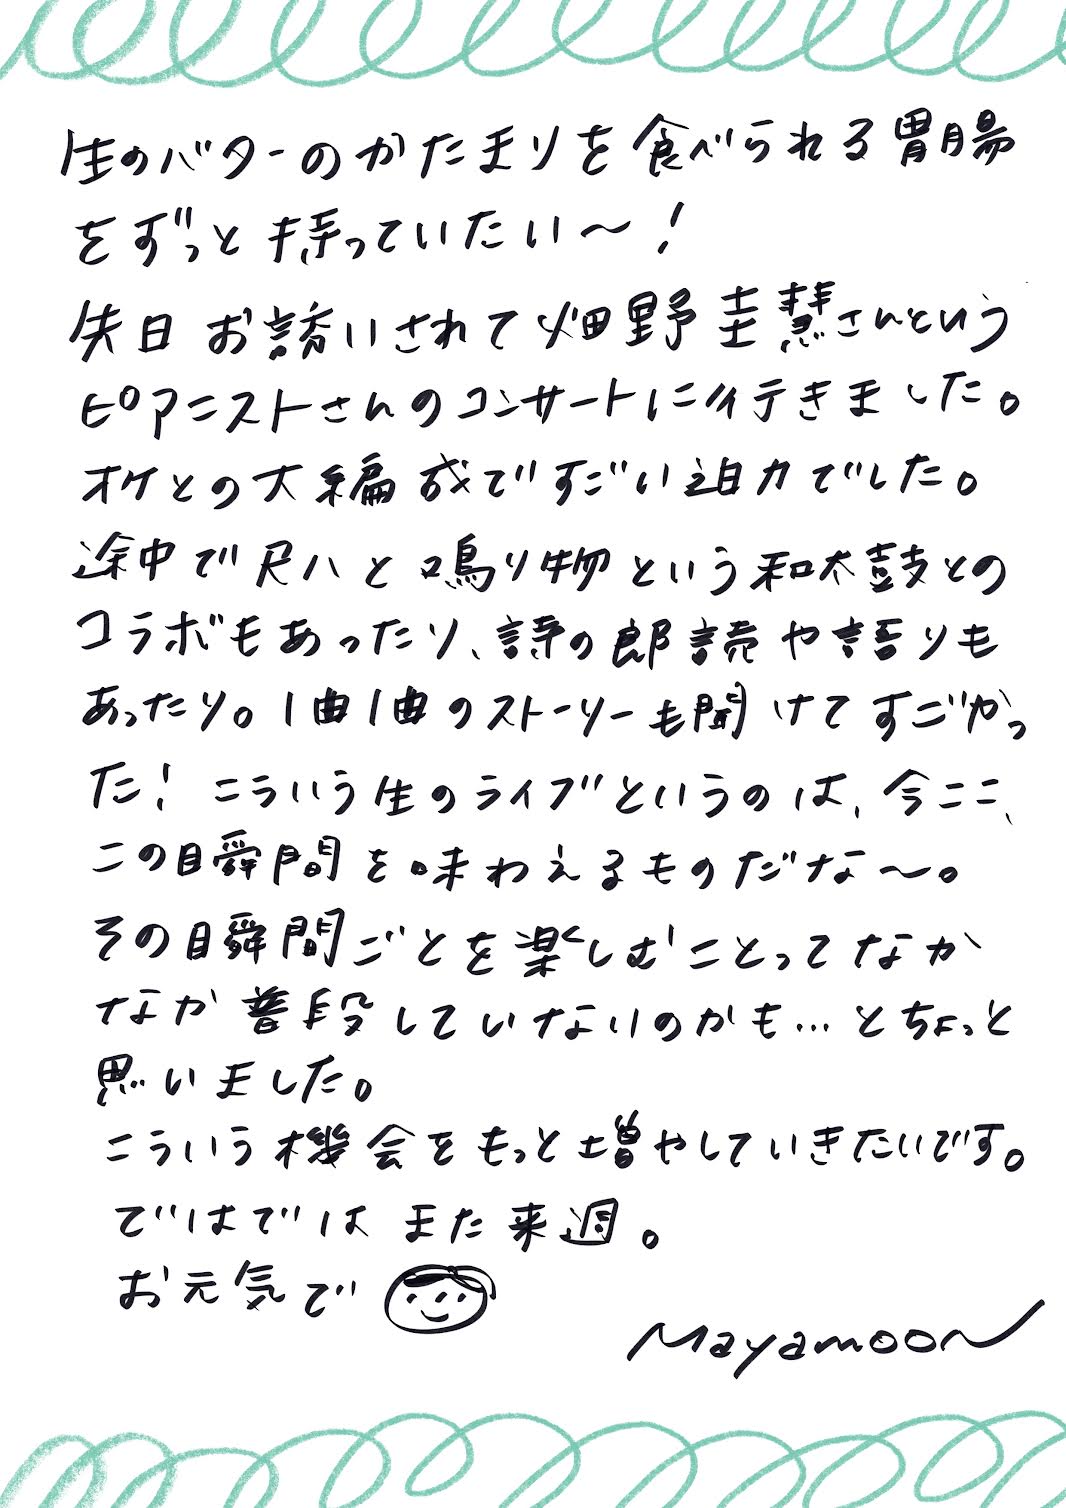 生のバターのかたまりを食べられる胃腸
をずっと持っていたい〜!
先日お誘いされて畑野圭慧さんという
ピアニストさんのコンサートに行きました。
オケとの大編成ですごい迫力でした。
途中で尺八と鳴り物という和太鼓との
コラボもあったり、詩の郎読や語りも
あったり。1曲1曲のストーリーも聞けてすごかっ
た! こういう生のライブというのは、今ここ、
この瞬間を味わえるものだな〜。
その瞬間ごとを楽しむことってなか
なか普段していないのかも…とちょっと
思いました。
こういう機会をもっと増やしていきたいです。
ではでは また来週。
お元気で
Mayamoon